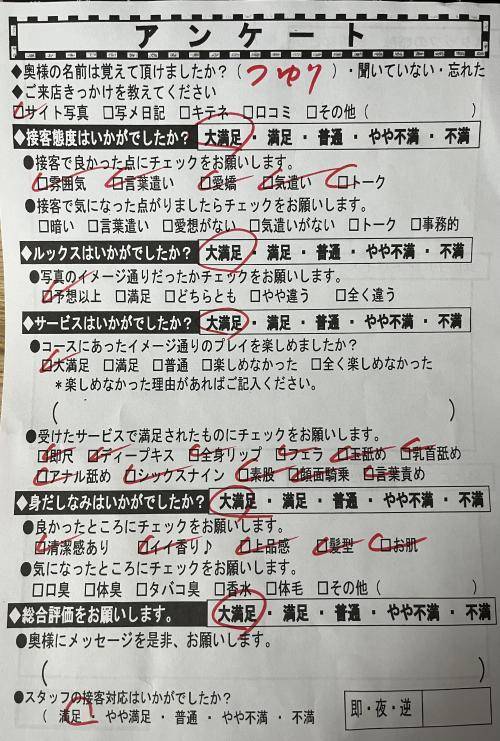 アンケート
◆奥様の名前は覚えて頂けましたか？（ つゆり ）・聞いていない・忘れた
◆ご来店きっかけを教えてください
□サイト写真 □写メ日記 □キテネ □口コミ □その他（ ）
◆接客態度はいかがでしたか？ 大満足・満足・普通・やや不満・不満
●接客で良かった点にチェックをお願いします。
□雰囲気 □言葉遣い □愛嬌 □気遣い □トーク
●接客で気になった点がりましたらチェックをお願いします。
□暗い □言葉遣い □愛想がない □気遣いがない □トーク □事務的
◆ルックスはいかがでしたか？ 大満足・満足・普通・やや不満・不満
●写真のイメージ通りだったかチェックをお願いします。
□予想以上 □満足 □どちらとも □やや違う □全く違う
◆サービスはいかがでしたか？ 大満足・満足・普通・やや不満・不満
●コースにあったイメージ通りのプレイを楽しめましたか？
□大満足 □満足 □普通 □楽しめなかった □全く楽しめなかった
＊楽しめなかった理由があればご記入ください。
（ ）
●受けたサービスで満足されたものにチェックをお願いします。
□即尺 □ディープキス □全身リップ □フェラ □玉舐め □乳首舐め
□アナル舐め □シックスナイン □素股 □顔面騎乗 □言葉責め
◆身だしなみはいかがでしたか？ 大満足・満足・普通・やや不満・不満
●良かったところにチェックをお願いします。
□清潔感あり □イイ香り♪ □上品感 □髪型 □お肌
●気になったところにチェックをお願いします。
□口臭 □体臭 □タバコ臭 □香水 □体毛 □その他（ ）
◆総合評価をお願いします。 大満足・満足・普通・やや不満・不満
●奥様にメッセージを是非、お願いします。
（ ）
●スタッフの接客対応はいかがでしたか？
（ 満足・やや満足・普通・やや不満・不満
即・夜・逆